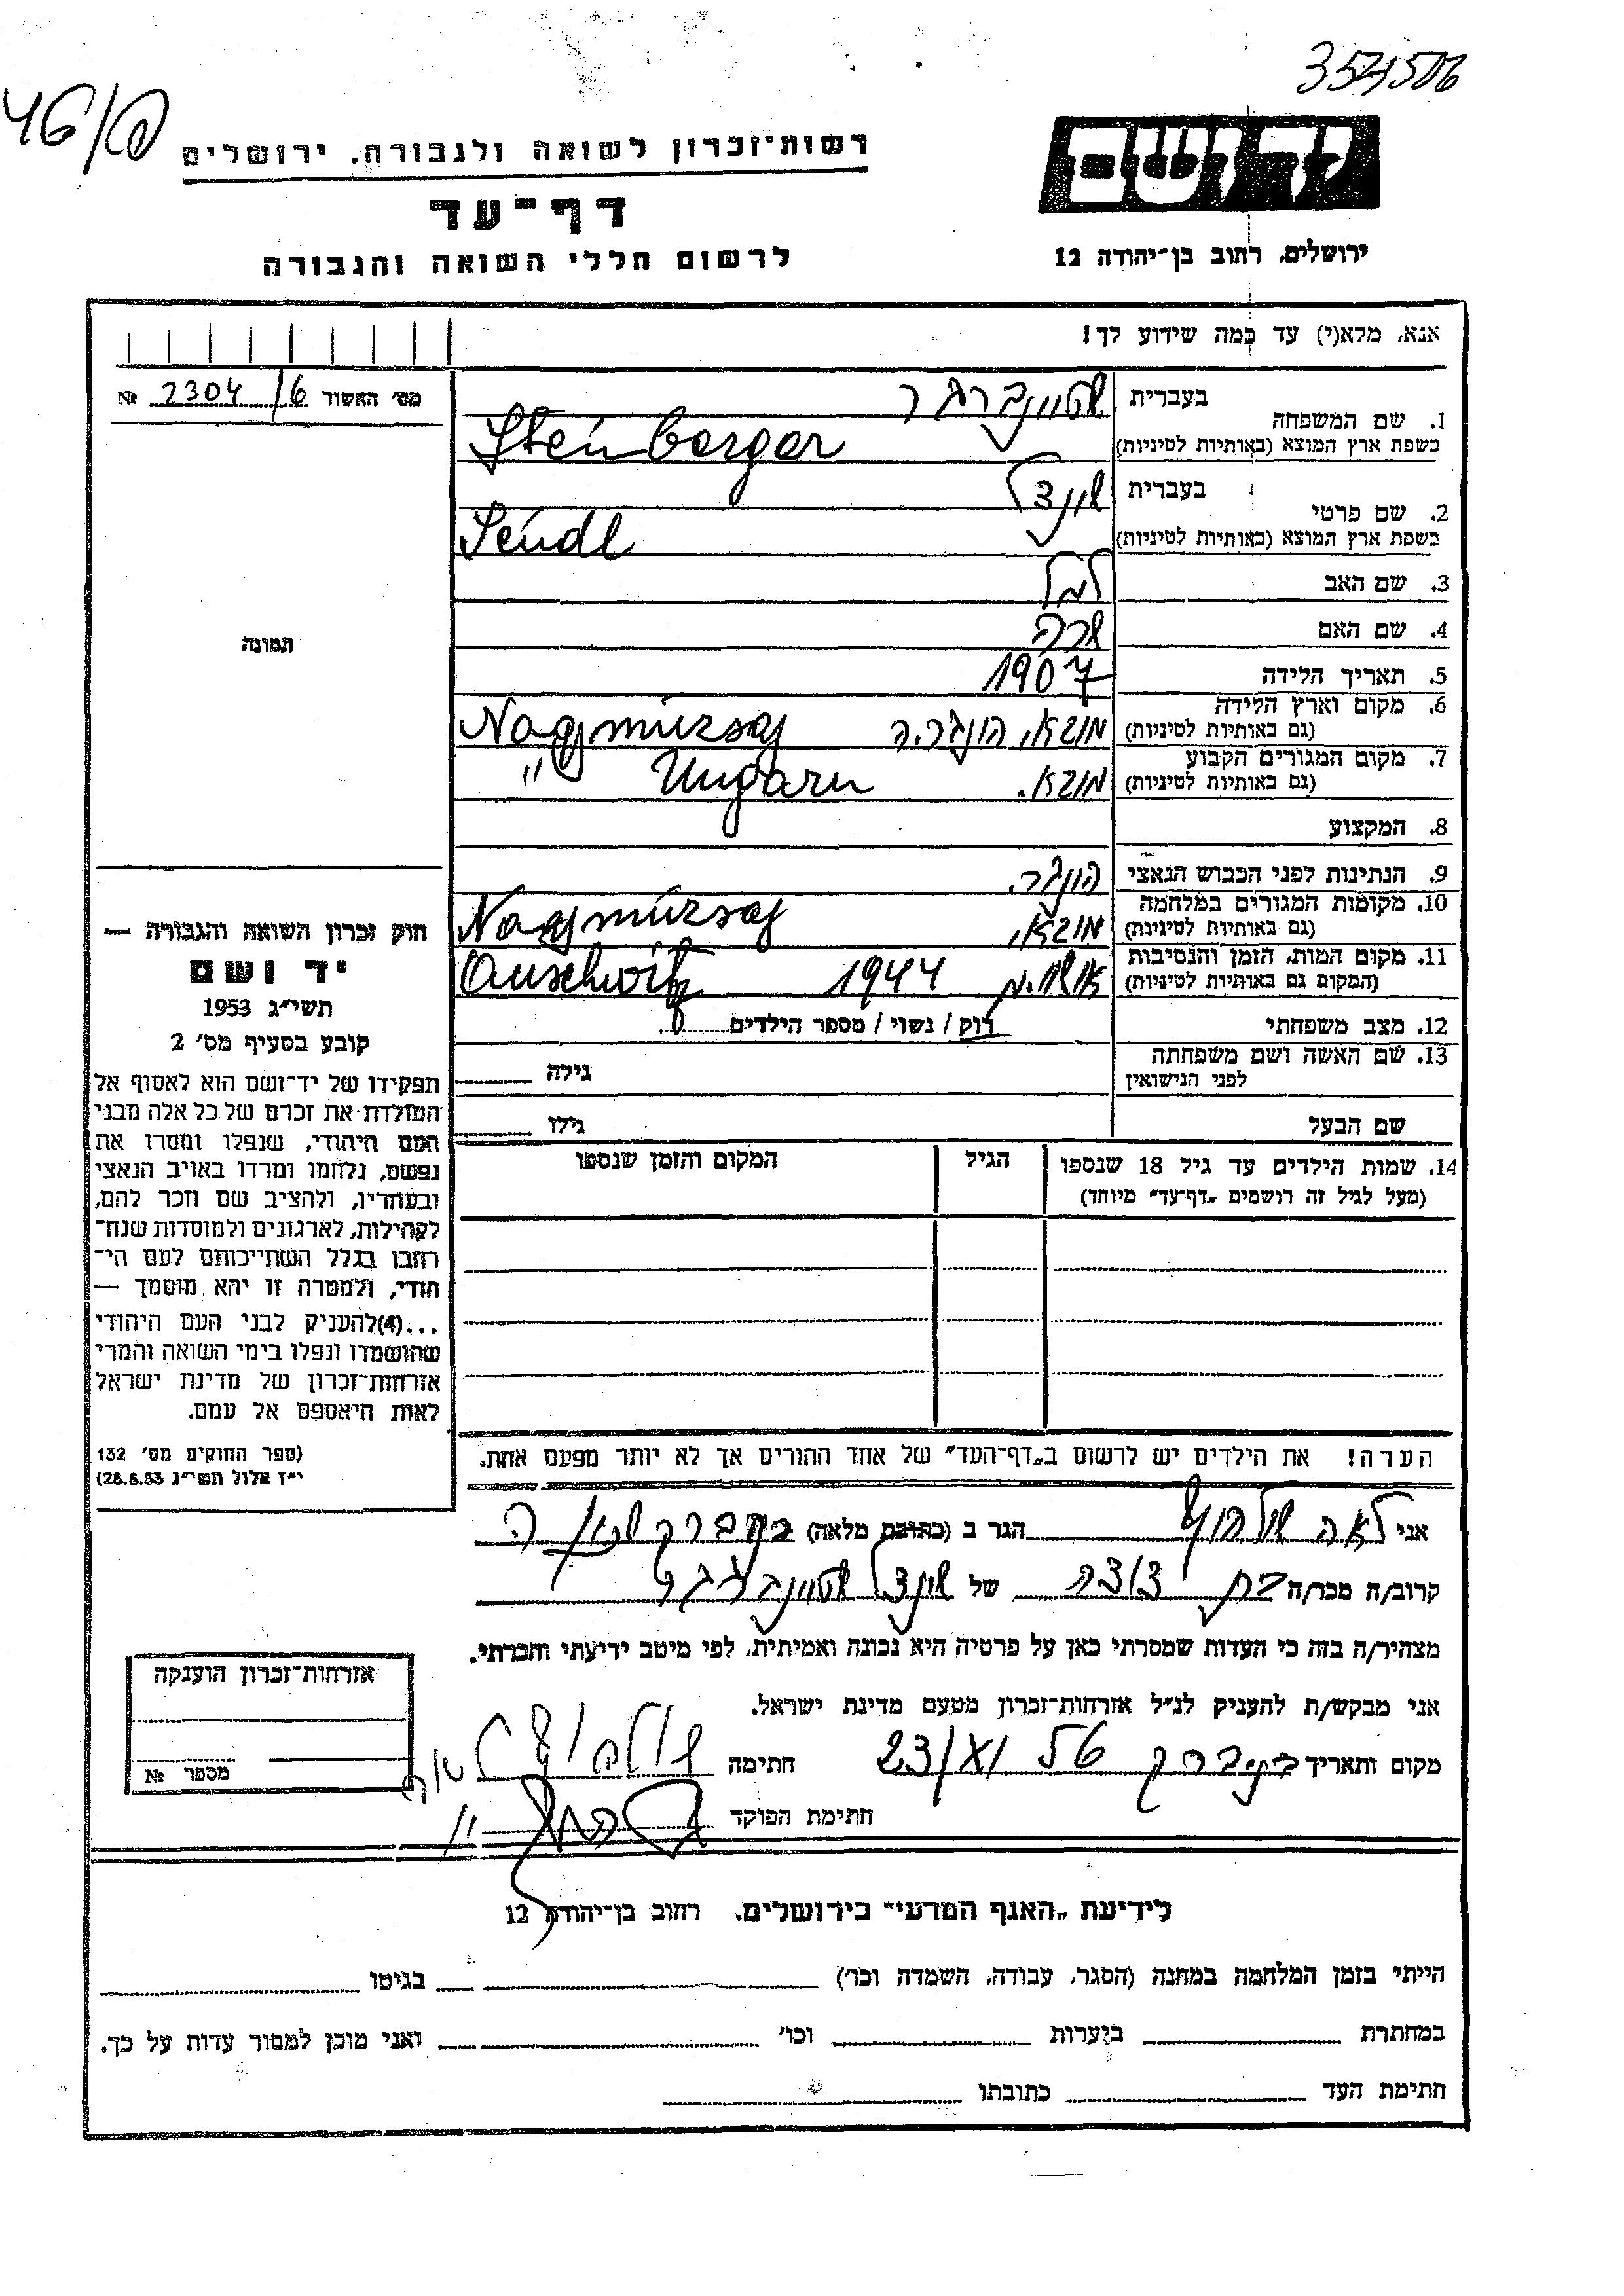 3521506
46/פ
יד ושם
רשות־זכרון לשואה ולגבורה, ירושלים
דף־עד
לרשום חללי השואה והגבורה
ירושלים, רחוב בן־יהודה 12
אנא, מלא(י) עד כמה שידוע לך!
מס' האשור 6/ 2304 №
1. שם המשפחה
בעברית שטיינברגר
בשפת ארץ המוצא (באותיות לטיניות) Steinberger
2. שם פרטי
בעברית שינדל
בשפת ארץ המוצא (באותיות לטיניות) Seindl
3. שם האב
4. שם האם שרה
5. תאריך הלידה 1907
6. מקום וארץ הלידה
(גם באותיות לטיניות) הונגריה
7. מקום המגורים הקבוע
(גם באותיות לטיניות) " Ungarn
8. המקצוע
9. הנתינות לפני הכבוש הנאצי הונגרי
10. מקומות המגורים במלחמה
(גם באותיות לטיניות)
11. מקום המות, הזמן והנסיבות
(המקום גם באותיות לטיניות) 1944 Auschwitz
12. מצב משפחתי רוק / נשוי / מספר הילדים
13. שם האשה ושם משפחתה
לפני הנישואין גילה
שם הבעל גילו
14. שמות הילדים עד גיל 18 שנספו הגיל המקום והזמן שנספו
(מעל לגיל זה רושמים „דף־עד" מיוחד)
הערה! את הילדים יש לרשום ב„דף־העד" של אחד ההורים אך לא יותר מפעם אחת.
תמונה
חוק זכרון השואה והגבורה —
יד ושם
תשי"ג 1953
קובע בסעיף מס' 2
תפקידו של יד־ושם הוא לאסוף אל
המולדת את זכרם של כל אלה מבני
העם היהודי, שנפלו ומסרו את
נפשם, נלחמו ומרדו באויב הנאצי
ובעוזריו, ולהציב שם וזכר להם,
לקהילות, לארגונים ולמוסדות שנח־
רבו בגלל השתייכותם לעם הי־
הודי, ולמטרה זו יהא מוסמך —
...(4)להעניק לבני העם היהודי
שהושמדו ונפלו בימי השואה והמרי
אזרחות־זכרון של מדינת ישראל
לאות היאספם אל עמם.
(ספר החוקים מס' 132
י"ז אלול תשי"ג 28.8.53)
אני לאה הגר ב (כתובת מלאה) בני ברק
קרוב/ה מכר/ה בת דודה של שינדל שטיינברגר
מצהיר/ה בזה כי העדות שמסרתי כאן על פרטיה היא נכונה ואמיתית, לפי מיטב ידיעתי והכרתי.
אני מבקש/ת להעניק לנ"ל אזרחות־זכרון מטעם מדינת ישראל.
מקום ותאריך בני ברק חתימה
חתימת הפוקד
אזרחות־זכרון הוענקה
מספר №
לידיעת „האגף המדעי" בירושלים, רחוב בן־יהודה 12
הייתי בזמן המלחמה במחנה (הסגר, עבודה, השמדה וכו') בגיטו
במחתרת ביערות וכו' ואני מוכן למסור עדות על כך.
חתימת העד כתובתו